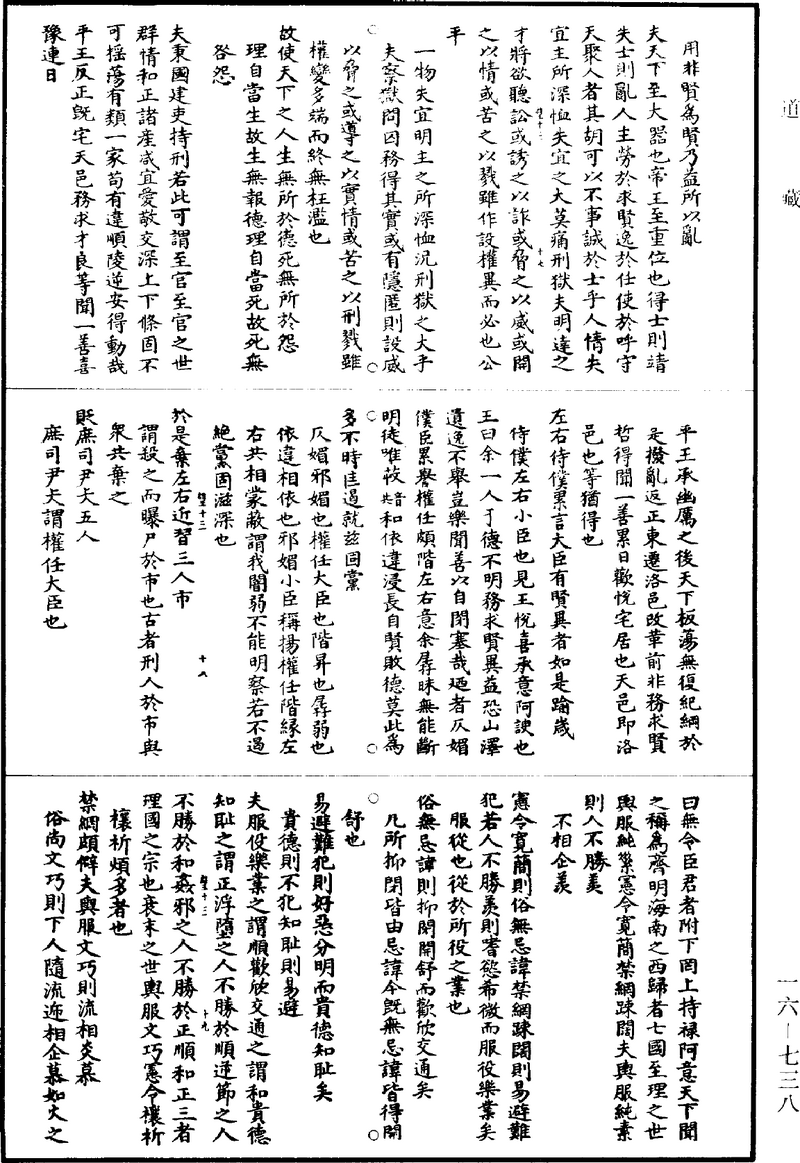 道藏
用非賢爲賢乃益所以亂
夫天下至大器也帝王至重位也得士則靖
失士則亂人主勞於求賢逸於任使於呼守
天聚人者其胡可以不事誠於士乎人情失
宜主所深恤失宜之大莫痛刑獄夫明達之
才將欲聽訟或誘之以詐或脅之以威或開
之以情或苦之以戮雖作設權異而必也公
平
一物失宜明主之所深恤況刑獄之大乎
夫察獄問囚務得其實或有隱匿則設威
以脅之或導之以實情或苦之以刑戮雖
權變多端而終無枉濫也
故使天下之人生無所於德死無所於怨
理自當生故生無報德理自當死故死無
咎怨
夫秉國建吏持刑若此可謂至官至官之世
群情和正諸產咸宜愛敬交深上下條固不
可搖蕩有類一家苟有違順陵逆安得動哉
平王反正既宅天邑務求才良等聞一善喜
豫連日
平王承幽厲之後天下板蕩無復紀綱於
是撥亂返正東遷洛邑改革前非務求賢
哲得聞一善累日歡悅宅居也天邑即洛
邑也等猶得也
左右侍僕累言大臣有賢異者如是踰歲
侍僕左右小臣也見王悅喜承意阿諛也
王曰余一人于德不明務求賢異益恐山澤
遺逸不舉豈樂聞善以自閉塞哉廼者仄媚
僕臣累譽權任頗階左右意余孱昧無能斷
明徒唯莜共音和依違浸長自賢敗德莫此爲
多不時匡遏就茲固黨
仄媚邪媚也權任大臣也階昇也孱弱也
依違相依也邪媚小臣稱揚權任階緣左
右共相蒙蔽謂我闇弱不能明察若不遏
絕黨固滋深也
於是棄左右近習三人市
謂殺之而曝尸於市也古者刑人於市與
衆共棄之
貶庶司尹大五人
庶司尹大謂權任大臣也
曰無令臣君者附下罔上持祿阿意天下聞
之稱爲齊明海南之西歸者七國至理之世
輿服純素憲令寬簡禁網踈闊夫輿服純素
則人不勝羨
不相企羨
憲令寬簡則俗無忌諱禁網踈闊則易避難
犯若人不勝羨則嗜慾希微而服役樂業矣
服從也從於所役之業也
俗無忌諱則抑閉開舒而歡欣交通矣
凡所抑閉皆由忌諱今既無忌諱皆得開
舒也
易避難犯則好惡分明而貴德知恥矣
貴德則不犯知恥則易避
夫服役樂業之謂順歡欣交通之謂和貴德
知恥之謂正浮墮之人不勝於順逆節之人
不勝於和姦邪之人不勝於正順和正三者
理國之宗也衰末之世輿服文巧憲令禳祈
禳祈煩多者也
禁網頗僻夫輿服文巧則流相炎慕
俗尚文巧則下人隨流遞相企慕如火之
一六—七三八